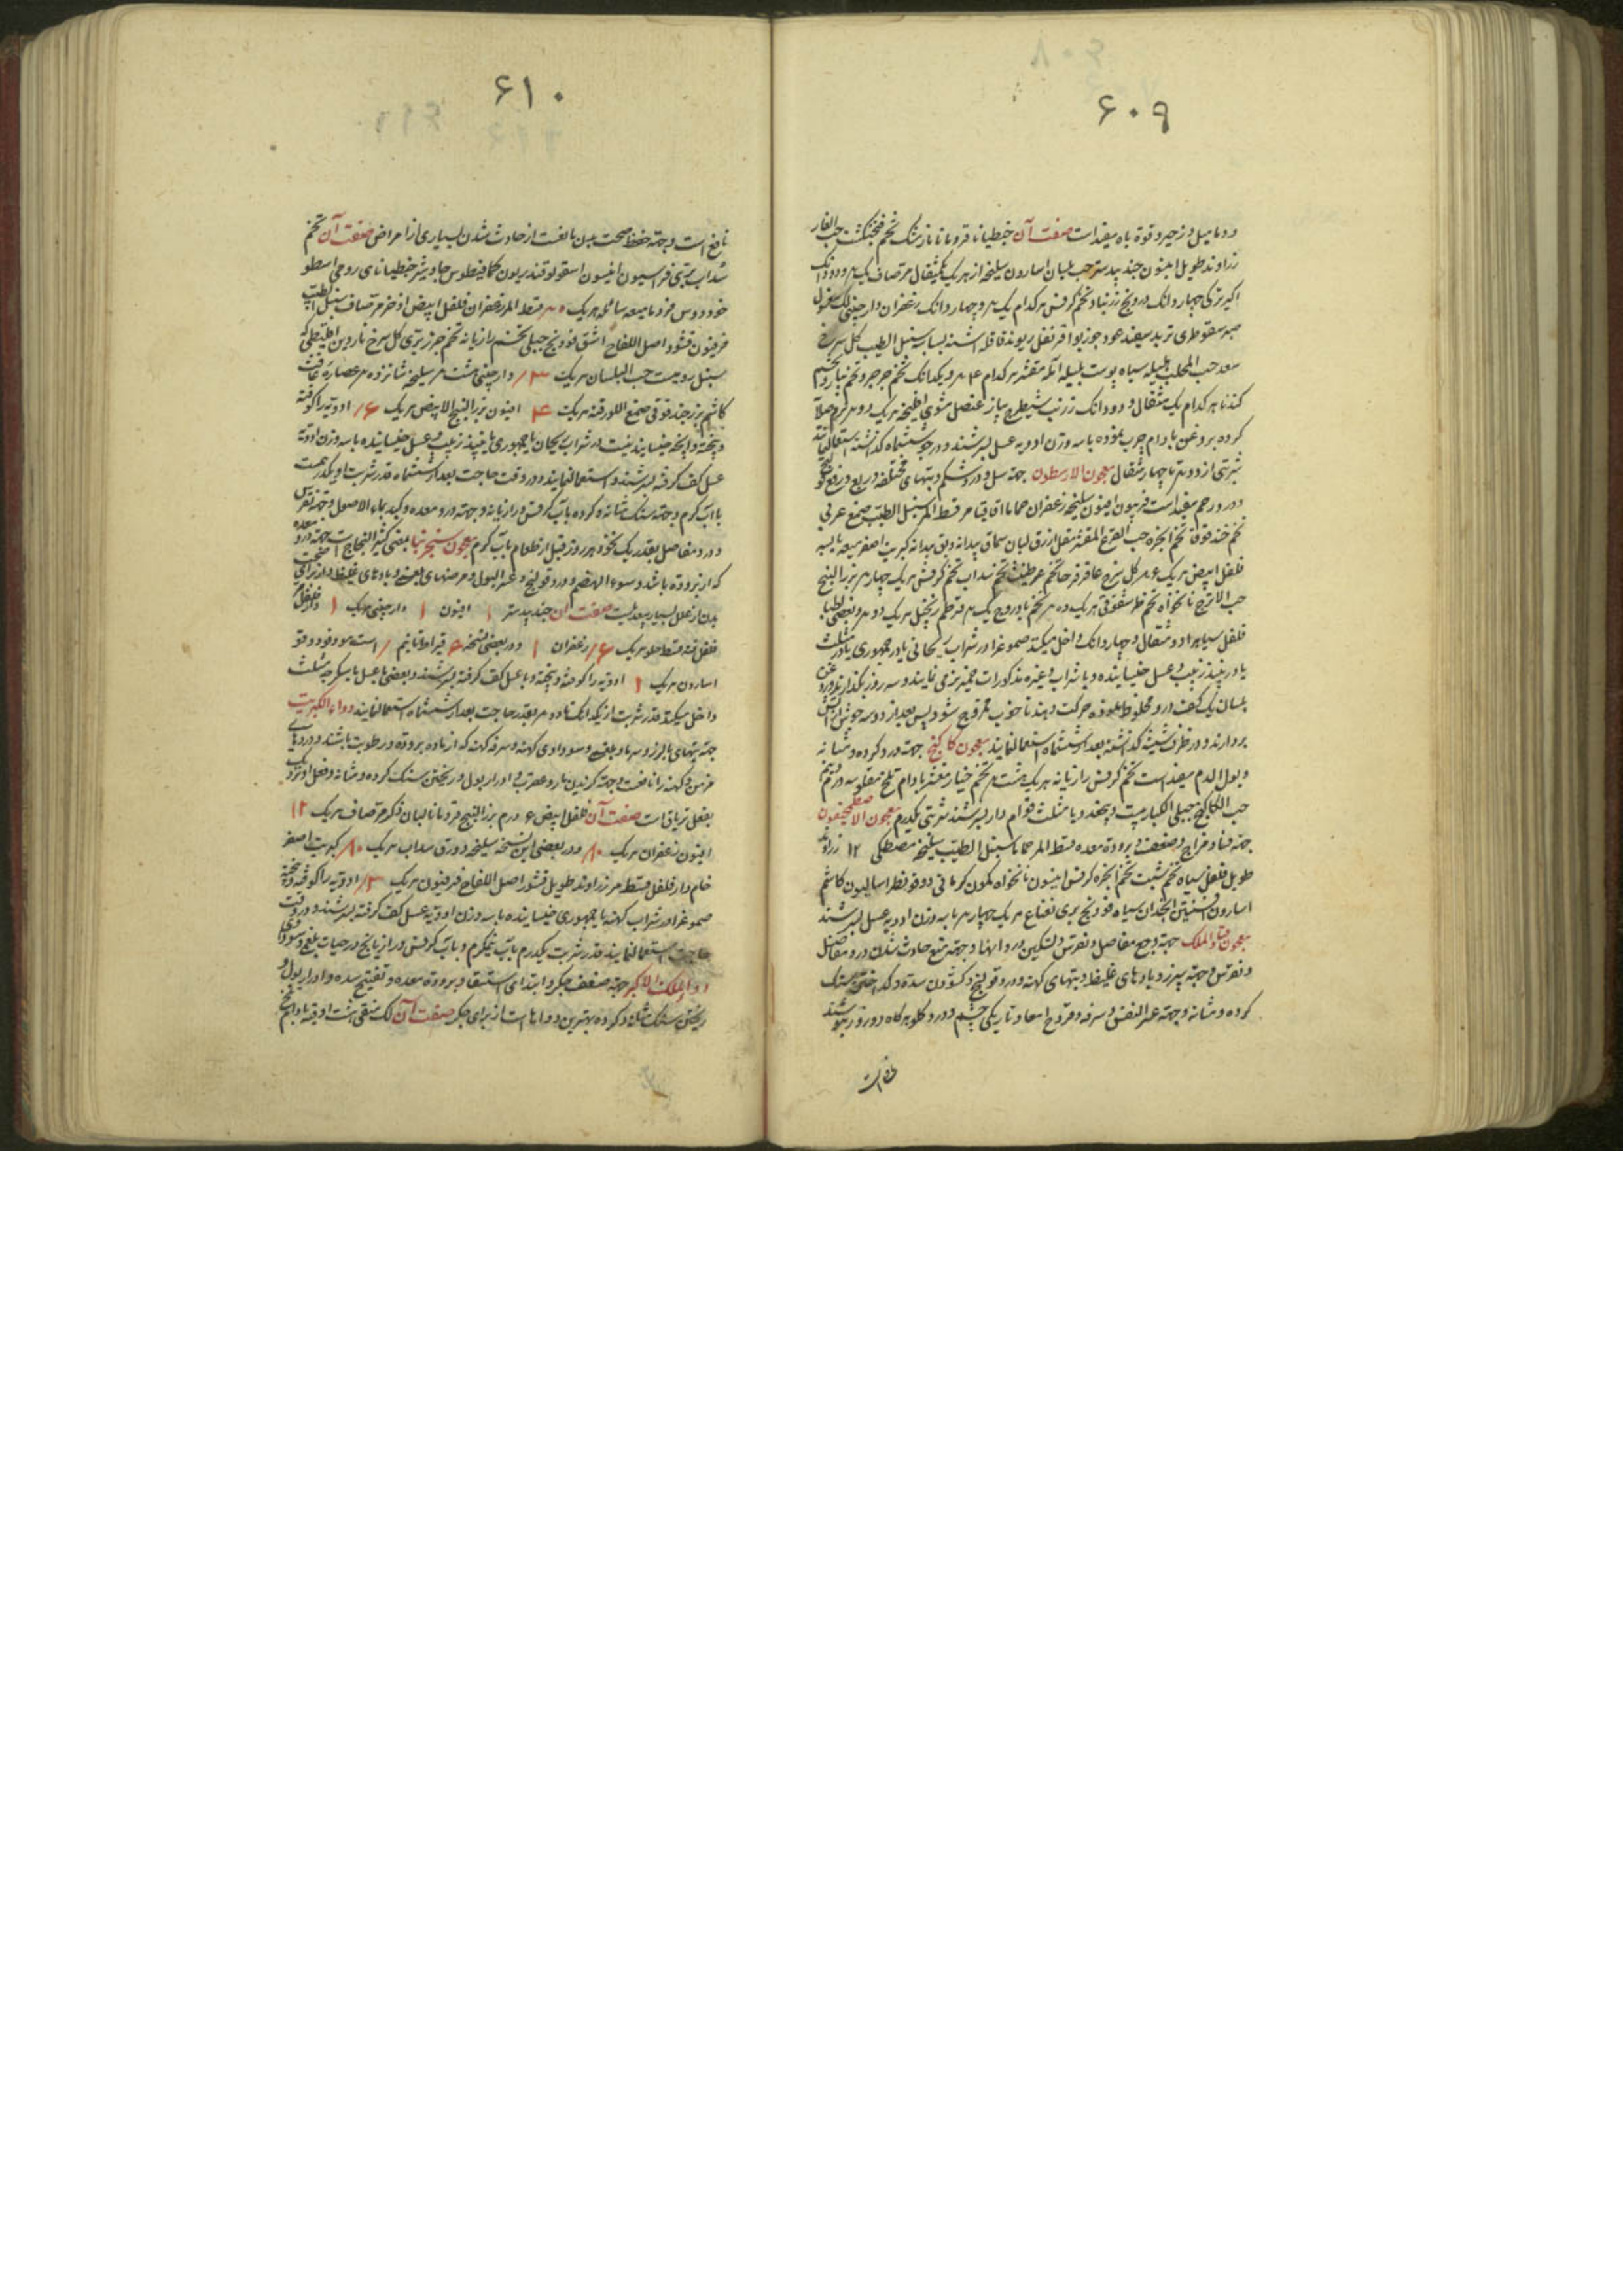 ۶۰۹
و دمامیل و زحیر و قوة باه مفید است صفت آن جنطیانا قردمانا نارمشک تخم فنجنکشت حب الغار
زراوند طویل افیون جندبیدستر حب بلسان اسارون سلیخه از هر یک یکمثقال مر صاف یک م و دودانک
اکیر ترکی چهار دانک درونج زرنباد تخم کرفس هر کدام یک م و چهار دانک زعفران دارچینی لک مغسول
صبر سقوطری تربد سفید عود جوزبوا قرنفل ریوند قاقله اشنه بسباسه سنبل الطیب کل سرخ
سعد حب المحلب هلیله سیاه پوست بلیله آمله مقشر هر کدام ۴ م و یکدانک تخم جرجیر و تخم پیاز و تخم
کندنا هر کدام یک مثقال و دودانک زرنب شیطرج پیاز عنصل مشوی هر یک دو م
کرده بروغن بادام چرب نموده با سه وزن ادویه عسل بسرشند و در جو ششماه کذاشته استعمال نمایند
شربتی از دو م تا چهار مثقال معجون الارسطون جهة سل و درد شکم و تبهای مختلفه و ربع و رفع
و درد رحم مفید است فربیون افیون سلیخه زعفران حماما اقاقیا مر قسط المر سنبل الطیب صمغ عربی
تخم خندقوقا تخم انجره حب القرع المقشر مقل ازرق لبان سماق بیدانه دبق بیدانه کبریت اصفر میعه یابسه
فلفل ابیض هر یک ۸ م کل سرخ عاقرقرحا تخم تخم سداب تخم کرفس هر یک چهار م بزر البنج
حب الاترج نانخواه تخم هر یک ده م تخم بادروج یک م قرطم زنجبیل هر یک دو م و بعضی اطبا
فلفل سیاه را دو مثقال و چهار دانک داخل میکند صموغ را در شراب ریحانی یا در جمهوری یا در مثلث
یا در نبیذ زبیب و عسل خیسانیده و با شراب و غیره مذکورات خمیر نرمی نمایند و سه روز بکذارند و روغن
بلسان یک کف در او مخلوط نموده حرکت دهند تا خوب ممزوج شود پس بعد از دو سه جوش از آتش
بردارند و در ظرف شیشه کذاشته بعد از ششماه استعمال نمایند معجون کاکنج جهة درد کرده و مثانه
و بول الدم مفید است تخم کرفس رازیانه هر یک هشت م تخم خیار مقشر بادام تلخ مقلو سه درم و نیم
حب الکاکنج جبلی الکبار بیست و پنجعدد با مثلث قوام دار بسرشند شربتی یکدرم معجون الاصطمخیقون
جهة فساد مزاج و ضعف و برودة معده قسط المر حماما سنبل الطیب سلیخه مصطکی ۱۲ زراوند
طویل فلفل سیاه تخم شبت تخم انجره کرفس انیسون نانخواه کمون کرمانی دوقو فطراسالیون کاشم
اسارون افسنتین انجدان سیاه فودنج بری نعناع هر یک چهار م با سه وزن ادویه عسل بسرشند
معجون قباد الملک جهة وجع مفاصل و نقرس و تسکین درد آنها و جهة منع حادث شدن درد مفاصل
و نقرس و جهة سپرز و بادهای غلیظ و تبهای کهنه و درد قولنج و کشودن سده و کداختن سنک
کرده و مثانه و جهة عسر النفس و سرفه و قروح امعا و تاریکی چشم و درد کلو هرکاه دو روز بنوشند
۶۱۰
نافع است و جهة حفظ صحت بدن مانعست از حادث شدن بسیاری از امراض صفت آن تخم
سداب بری فراسیون انیسون اسقولوقندریون کمافیطوس جاوشیر جنطیانای رومی اسطو
خودوس فودنا میعه سائله هر یک ۵ م قسط المر زعفران فلفل ابیض اذخر مر صاف سنبل الطیب
فرفیون قشور اصل اللفاح اشق فودنج جبلی تخم رازیانه تخم جزر بری کل سرخ ناردین اقلیطی که
سنبل رومیست حب البلسان هر یک ۳ دارچینی هشت م سلیخه شانزده م عصاره غافت
کاشم بزر جندقوقی صمغ اللوز قنه هر یک ۴ افیون بزر البنج الابیض هر یک ۶ ادویه را کوفته
و بیخته و آنچه خیسانیدنیست در شراب ریحان یا جمهوری یا نبیذ زبیب و عسل خیسانیده با سه وزن ادویه
عسل کف کرفته بسرشند و استعمال نمایند در وقت حاجت بعد از ششماه قدر شربت او یکدرمست
با آب کرم و جهة سنک مثانه و کرده بآب کرفس و رازیانه و جهة درد معده و کبد بماء الاصول و جهة نقرس
و درد مفاصل بقدر یک نخود هر روز قبل از طعام بآب کرم معجون سنجرنیا بمعنی کثیر النجاح است جهة درد معده
که از برودة باشد و سوء الهضم و درد قولنج و عسر البول و مرضهای بلغمی و بادهای غلیظ و از برای صحت
بدن از علل بسیار مفیدست صفت آن جندبیدستر ۱ افیون ۱ دارچینی هر یک ۱ دارفلفل
فلفل قنه قسط حلو هر یک ۶ زعفران ۱ و در بعضی نسخه ۵ قیراط تا نیم است مو و فو و دوقو
اسارون هر یک ۱ ادویه را کوفته و بیخته و با عسل کف کرفته بسرشند و بعضی با عسل
داخل میکند قدر شربت از یکدانک تا دو م بقدر حاجت بعد از ششماه استعمال نمایند دواء الکبریت
جهة تبهای با لرز و سرما و بلغمی و سوداوی کهنه و سرفه کهنه که از ماده برودة و رطوبت باشند و دردهای
مزمن و کهنه را نافعست و جهة کزیدن مار و عقرب و ادرار بول و ریختن سنک کرده و مثانه و فعل او نزدیک
بفعل تریاق است صفت آن فلفل ابیض ۶ درم بزر البنج قردمانا لبان ذکر مر صاف هر یک ۱۲
افیون زعفران هر یک ۱۰ و در بعضی این نسخه سلیخه و ورق سداب هر یک ۱۰ کبریت اصفر
خام دارفلفل قسط مر زراوند طویل قشور اصل اللفاح فرفیون هر یک ۳ ادویه را کوفته و بیخته
صموغ را در شراب کهنه یا جمهوری خیسانیده با سه وزن ادویه عسل کف کرفته بسرشند و در وقت
حاجت استعمال نمایند قدر شربت یکدرم بآب نیمکرم و بآب کرفس و رازیانج در حمیات بلغمی و سوداوی
دواء الملک الاکبر جهة ضعف جکر و ابتدای استسقا و برودة معده و تفتیح سده و ادرار بول و
ریختن سنک مثانه و کرده بهترین دواها است از برای جکر صفت آن لک منقی هشت اوقیه بادام تلخ